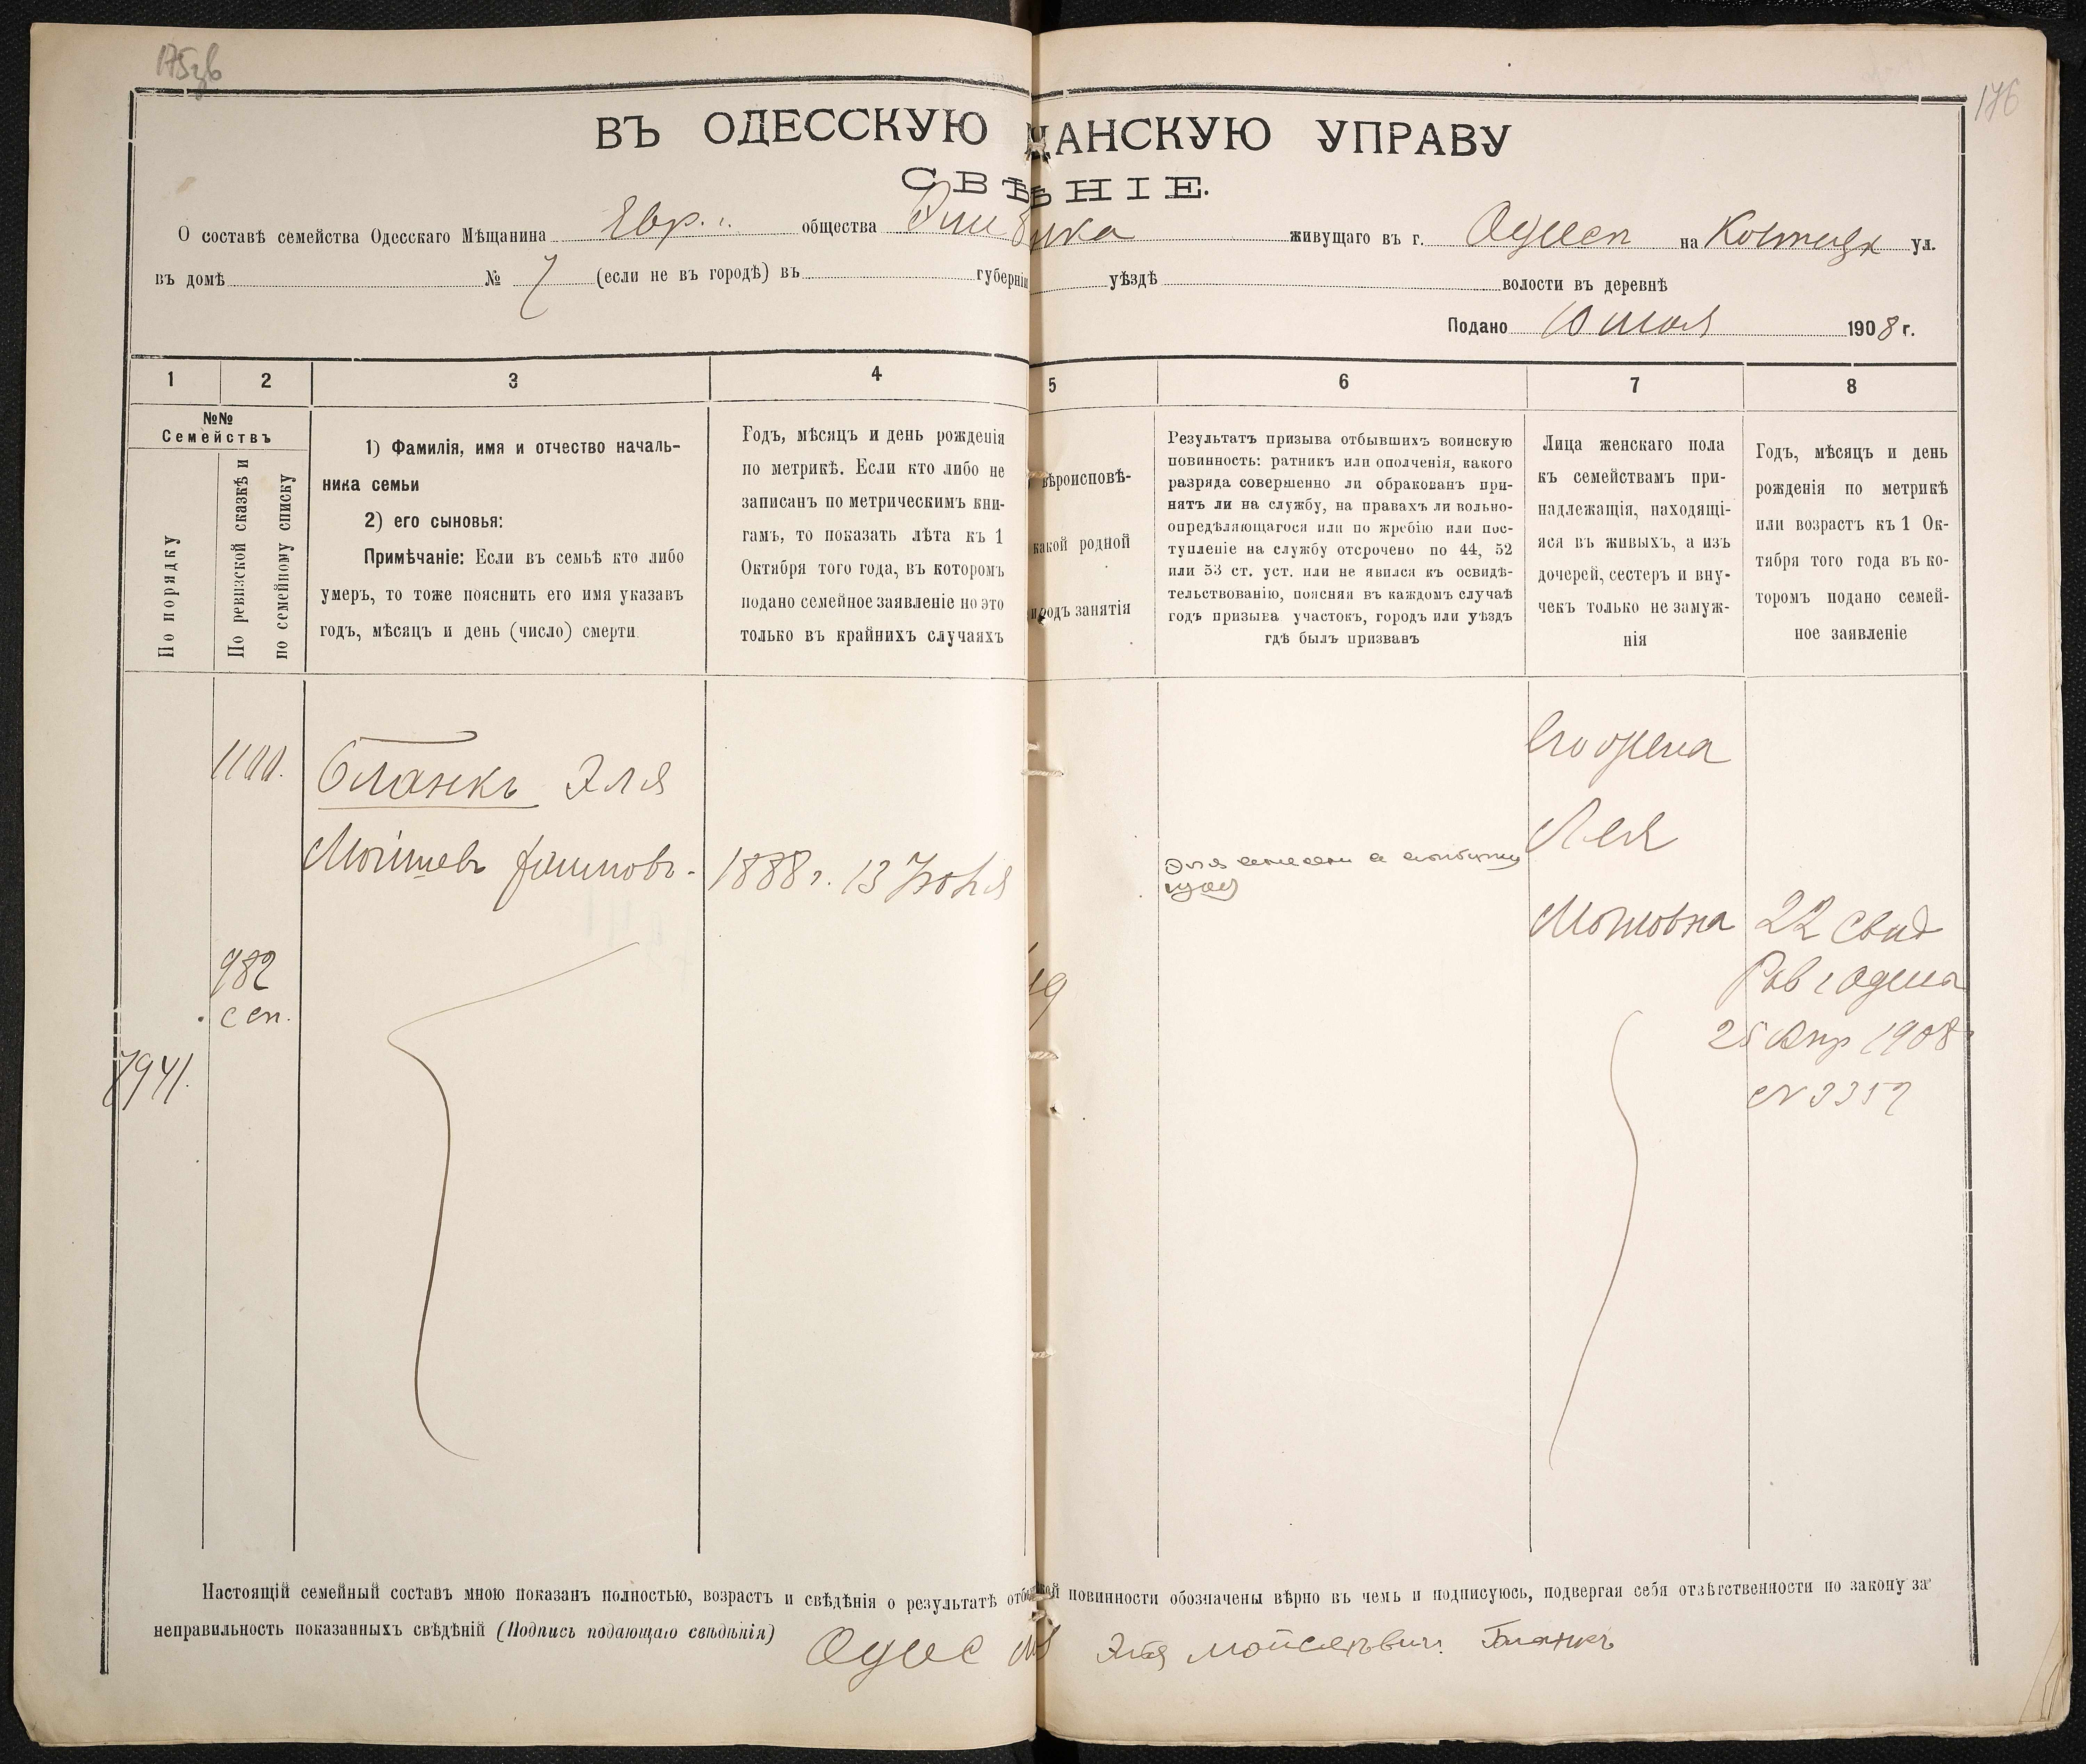 176
ВЪ ОДЕССКУЮ ЩАНСКУЮ УПРАВУ
СВѢ ѢНІЕ.
О составѣ семейства Одесскаго Мѣщанина Евр. общества живущаго въ г. Одессѣ на ул.
въ домѣ № 7 (если не въ городѣ) въ губерніи уѣздѣ волости въ деревнѣ
Подано 10 1908 г.
1 2 3 4 5 6 7 8
№№
Семействъ
По порядку
По ревизской сказкѣ и
по семейному списку
1) Фамилія, имя и отчество началь-
ника семьи
2) его сыновья:
Примѣчаніе: Если въ семьѣ кто либо
умеръ, то тоже пояснить его имя указавъ
годъ, мѣсяцъ и день (число) смерти
Годъ, мѣсяцъ и день рожденія
по метрикѣ. Если кто либо не
записанъ по метрическимъ кни-
гамъ, то показать лѣта къ 1
Октября того года, въ которомъ
подано семейное заявленіе но это
только въ крайнихъ случаяхъ
вѣроисповѣ-
какой родной
родъ занятія
Результатъ призыва отбывшихъ воинскую
повинность: ратникъ или ополченія, какого
разряда совершенно ли обракованъ при-
нятъ ли на службу, на правахъ ли вольно-
опредѣляющагося или по жребію или пос-
тупленіе на службу отсрочено по 44, 52
или 53 ст. уст. или не явился къ освидѣ-
тельствованію, поясняя въ каждомъ случаѣ
годъ призыва участокъ, городъ или уѣздъ
гдѣ былъ призванъ
Лица женскаго пола
къ семействамъ при-
надлежащія, находящі-
яся въ живыхъ, а изъ
дочерей, сестеръ и вну-
чекъ только не замуж-
нія
Годъ, мѣсяцъ и день
рожденія по метрикѣ
или возрастъ къ 1 Ок-
тября того года въ ко-
торомъ подано семей-
ное заявленіе
1100.
Бланкъ Эля
Мойшевъ
1888 г. 13 Іюня
982
сен.
7941.
Его жена
Лея
Мотовна
22 Свид
Рав г Одессы
25 Апр 1908
№ 3352
Настоящій семейный составъ мною показанъ полностью, возрастъ и свѣдѣнія о результатѣ отбы кой повинности обозначены вѣрно въ чемъ и подписуюсь, подвергая себя отвѣтственности по закону за
неправильность показанныхъ свѣдѣній (Подпись подающаго свѣдѣнія) Одес Эля Мойсеевичъ Бланкъ